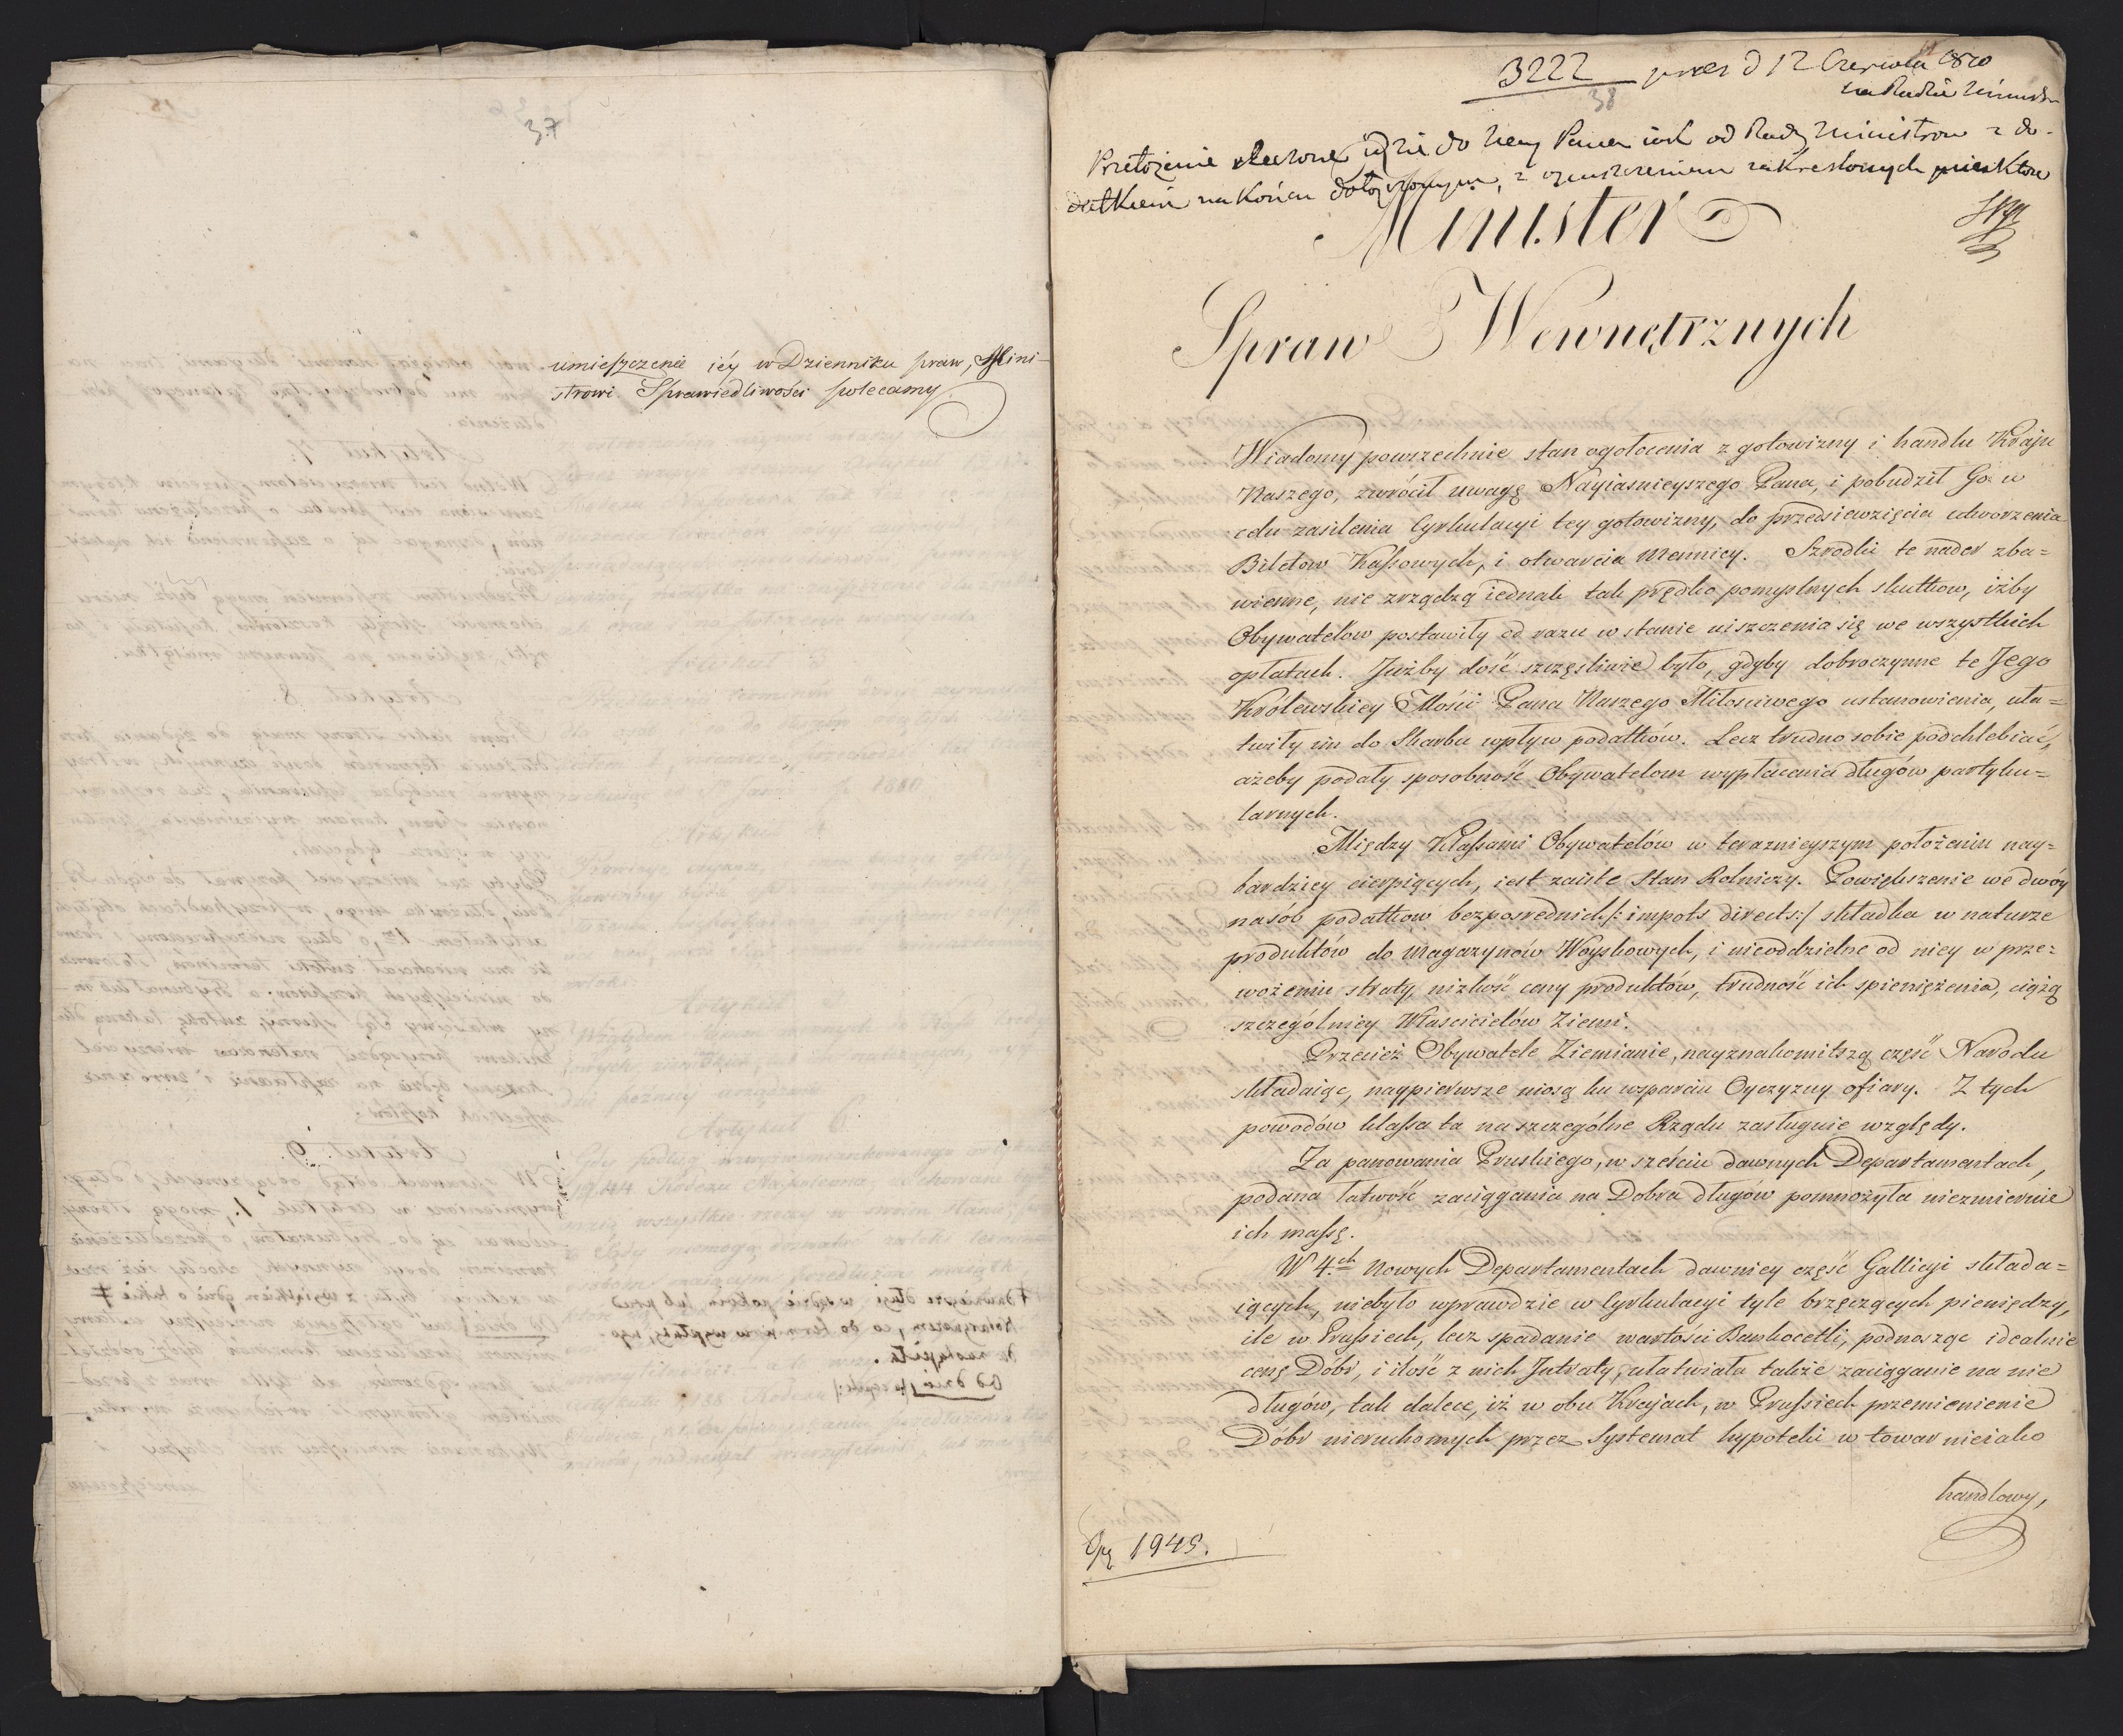 37
umieszczenie iéy w Dzienniku praw, Mini-
strowi Sprawiedliwości polecamy.
3222 prez d 12 Czerwca 1810
na Radzie Ministr
38
Przełożenie idzie do Nay Pana iak od Rady Ministrow z do-
datkiem na Końcu dołożonym, z opuszczeniem zakreslonych punktow
Minister
Spraw Wewnętrznych
Wiadomy powszechnie stan ogołocenia z gotowizny i handlu Kraju
Naszego, zwrócił uwagę Nayiasnieyszego Pana, i pobudził Go w
celu zasilenia Cyrkulacyi tey gotowizny, do przedsiewzięcia utworzenia
Biletow Kassowych, i otwarcia Mennicy. Szrodki te nader zba=
wienne, nie zrządzą iednak tak prędko pomyslnych skutkow, iżby
Obywatelow postawiły od razu w stanie uiszczenia się we wszystkich
opłatach. Jużby dość szczęsliwie było, gdyby dobroczynne te Jego
Królewskiey Mości Pana Naszego Miłosciwego ustanowienia, uła=
twiły im do Skarbu wpływ podatków. Lecz trudno sobie podchlebiać,
ażeby podały sposobność Obywatelom wypłacenia długów partyku=
larnych.
Między Klassami Obywatelów w teraznieyszym położeniu nay=
bardziey cierpiących, iest zaiste Stan Rolniczy. Powiększenie we dwóy
nasób podatkow bezposrednich /: impots directs :/ składka w naturze
produktów do Magazynów Woyskowych, i nieoddzielne od niey w prze=
wożeniu straty, nizkość ceny produktów, trudność ich spieniężenia, ciążą
szczególniey Własicielów Ziemi.
Przecież Obywatele Ziemianie, nayznakomitszą część Narodu
składaiąc, naypierwsze niosą ku wsparciu Oyczyzny ofiary. Z tych
powodów klassa ta na szczególne Rządu zasługuie względy.
Za panowania Pruskiego, w sześciu dawnych Departamentach,
podana łatwość zaciągania na Dobra długów pomnożyła niezmiernie
ich massę.
W 4.ch Nowych Departamentach dawniey część Gallicyi składa=
iących, niebyło wprawdzie w Cyrkulacyi tyle brzęczących pieniędzy,
ile w Prussiech, lecz spadanie wartości Bankocetli, podnosząc idealnie
cenę Dóbr, i ilość z nich Jntraty, ułatwiała także zaciąganie na nie
długów, tak dalece, iż w obu Krajach, w Prussiech przemienienie
Dóbr nieruchomych przez Systemat hypoteki w towar nieiako
handlowy,
1949.